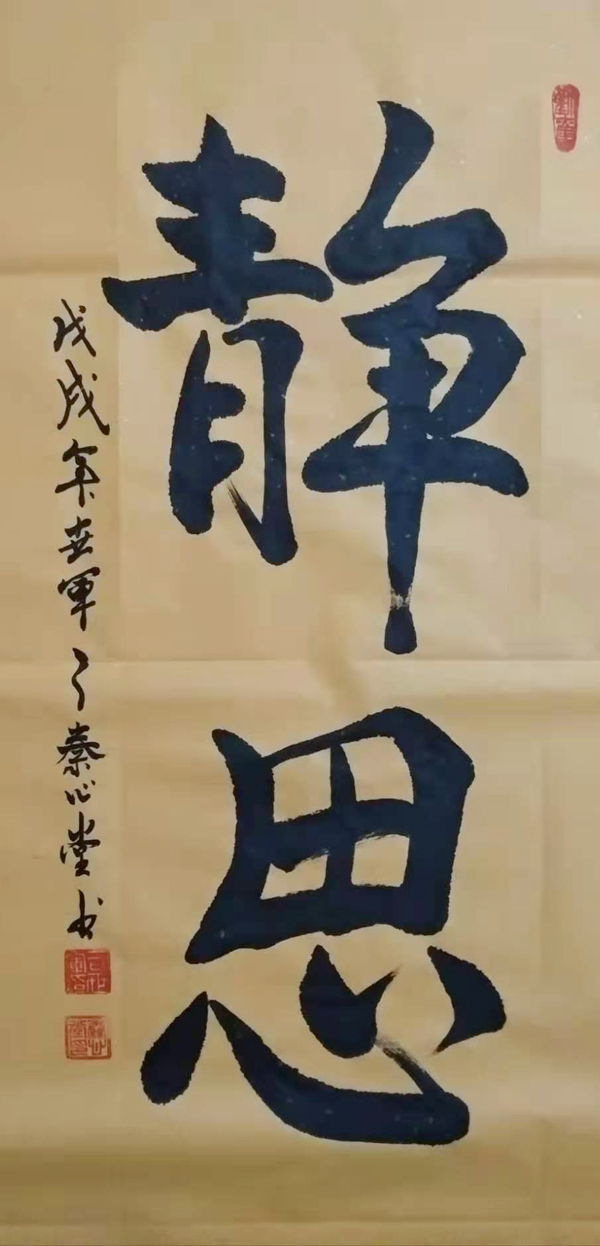 静思
戊戌年世军于秦心堂书